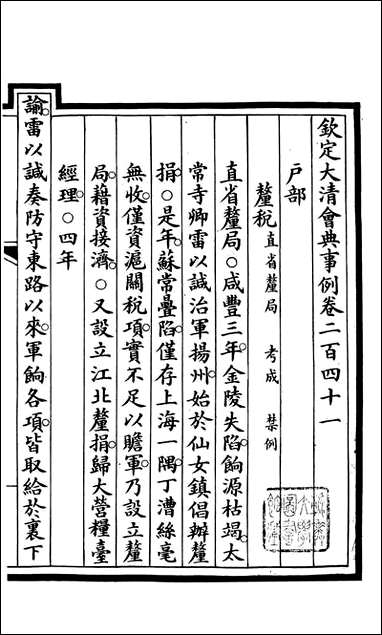 欽定大清會典事例卷二百四十一
戶部
釐稅直省釐局 考成 禁例
直省釐局○咸豐三年金陵失陷餉源枯竭太
常寺卿雷以諴治軍揚州始於仙女鎮倡辦釐
捐○是年蘇常疊陷僅存上海一隅丁漕絲毫
無收僅資滬關稅項實不足以贍軍乃設立釐
局藉資接濟○又設立江北釐捐歸大營糧臺
經理○四年
諭雷以諴奏防守東路以來軍餉各項皆取給於裏下